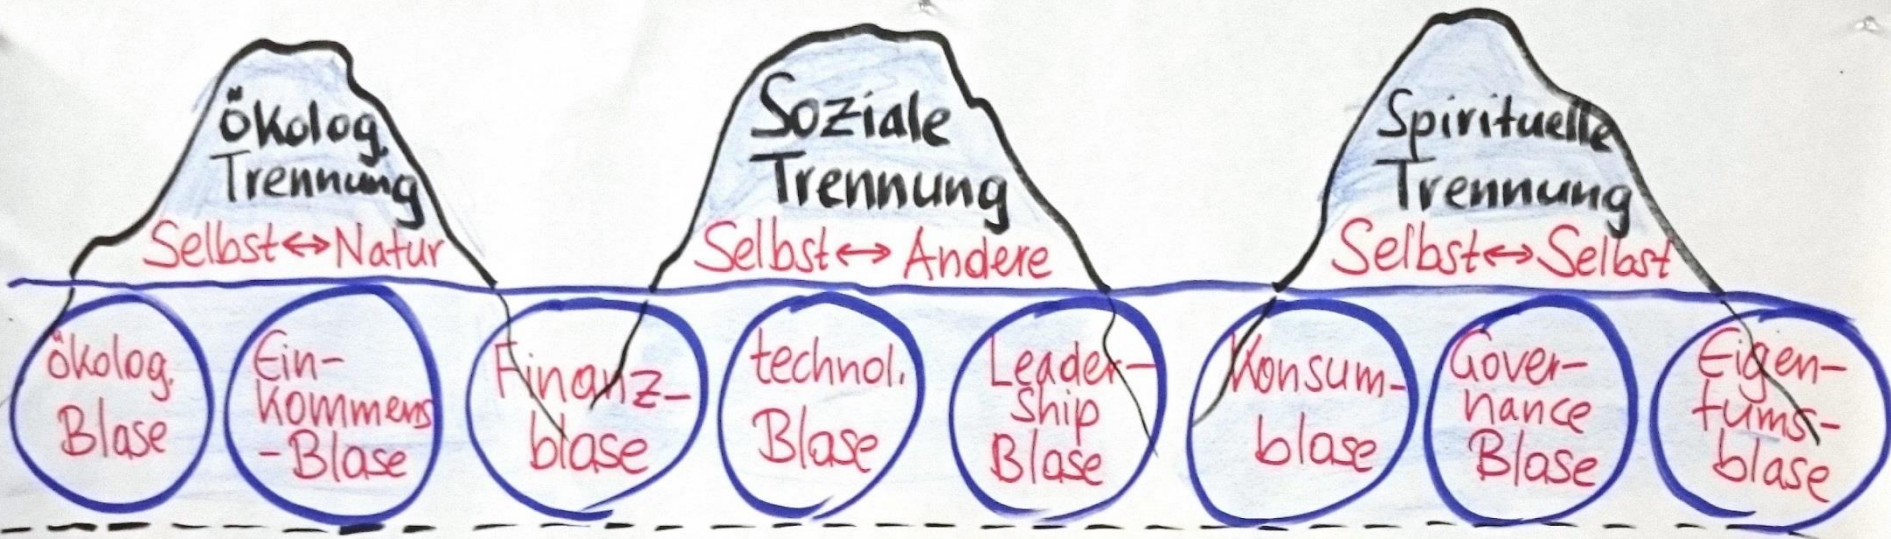 Ökolog.
Trennung
Selbst↔Natur
Soziale
Trennung
Selbst↔Andere
Spirituelle
Trennung
Selbst↔Selbst
ökolog.
Blase
Ein-
kommens
-Blase
Finanz-
blase
technol.
Blase
Leader-
ship
Blase
Konsum-
blase
Gover-
nance
Blase
Eigen-
tums-
blase